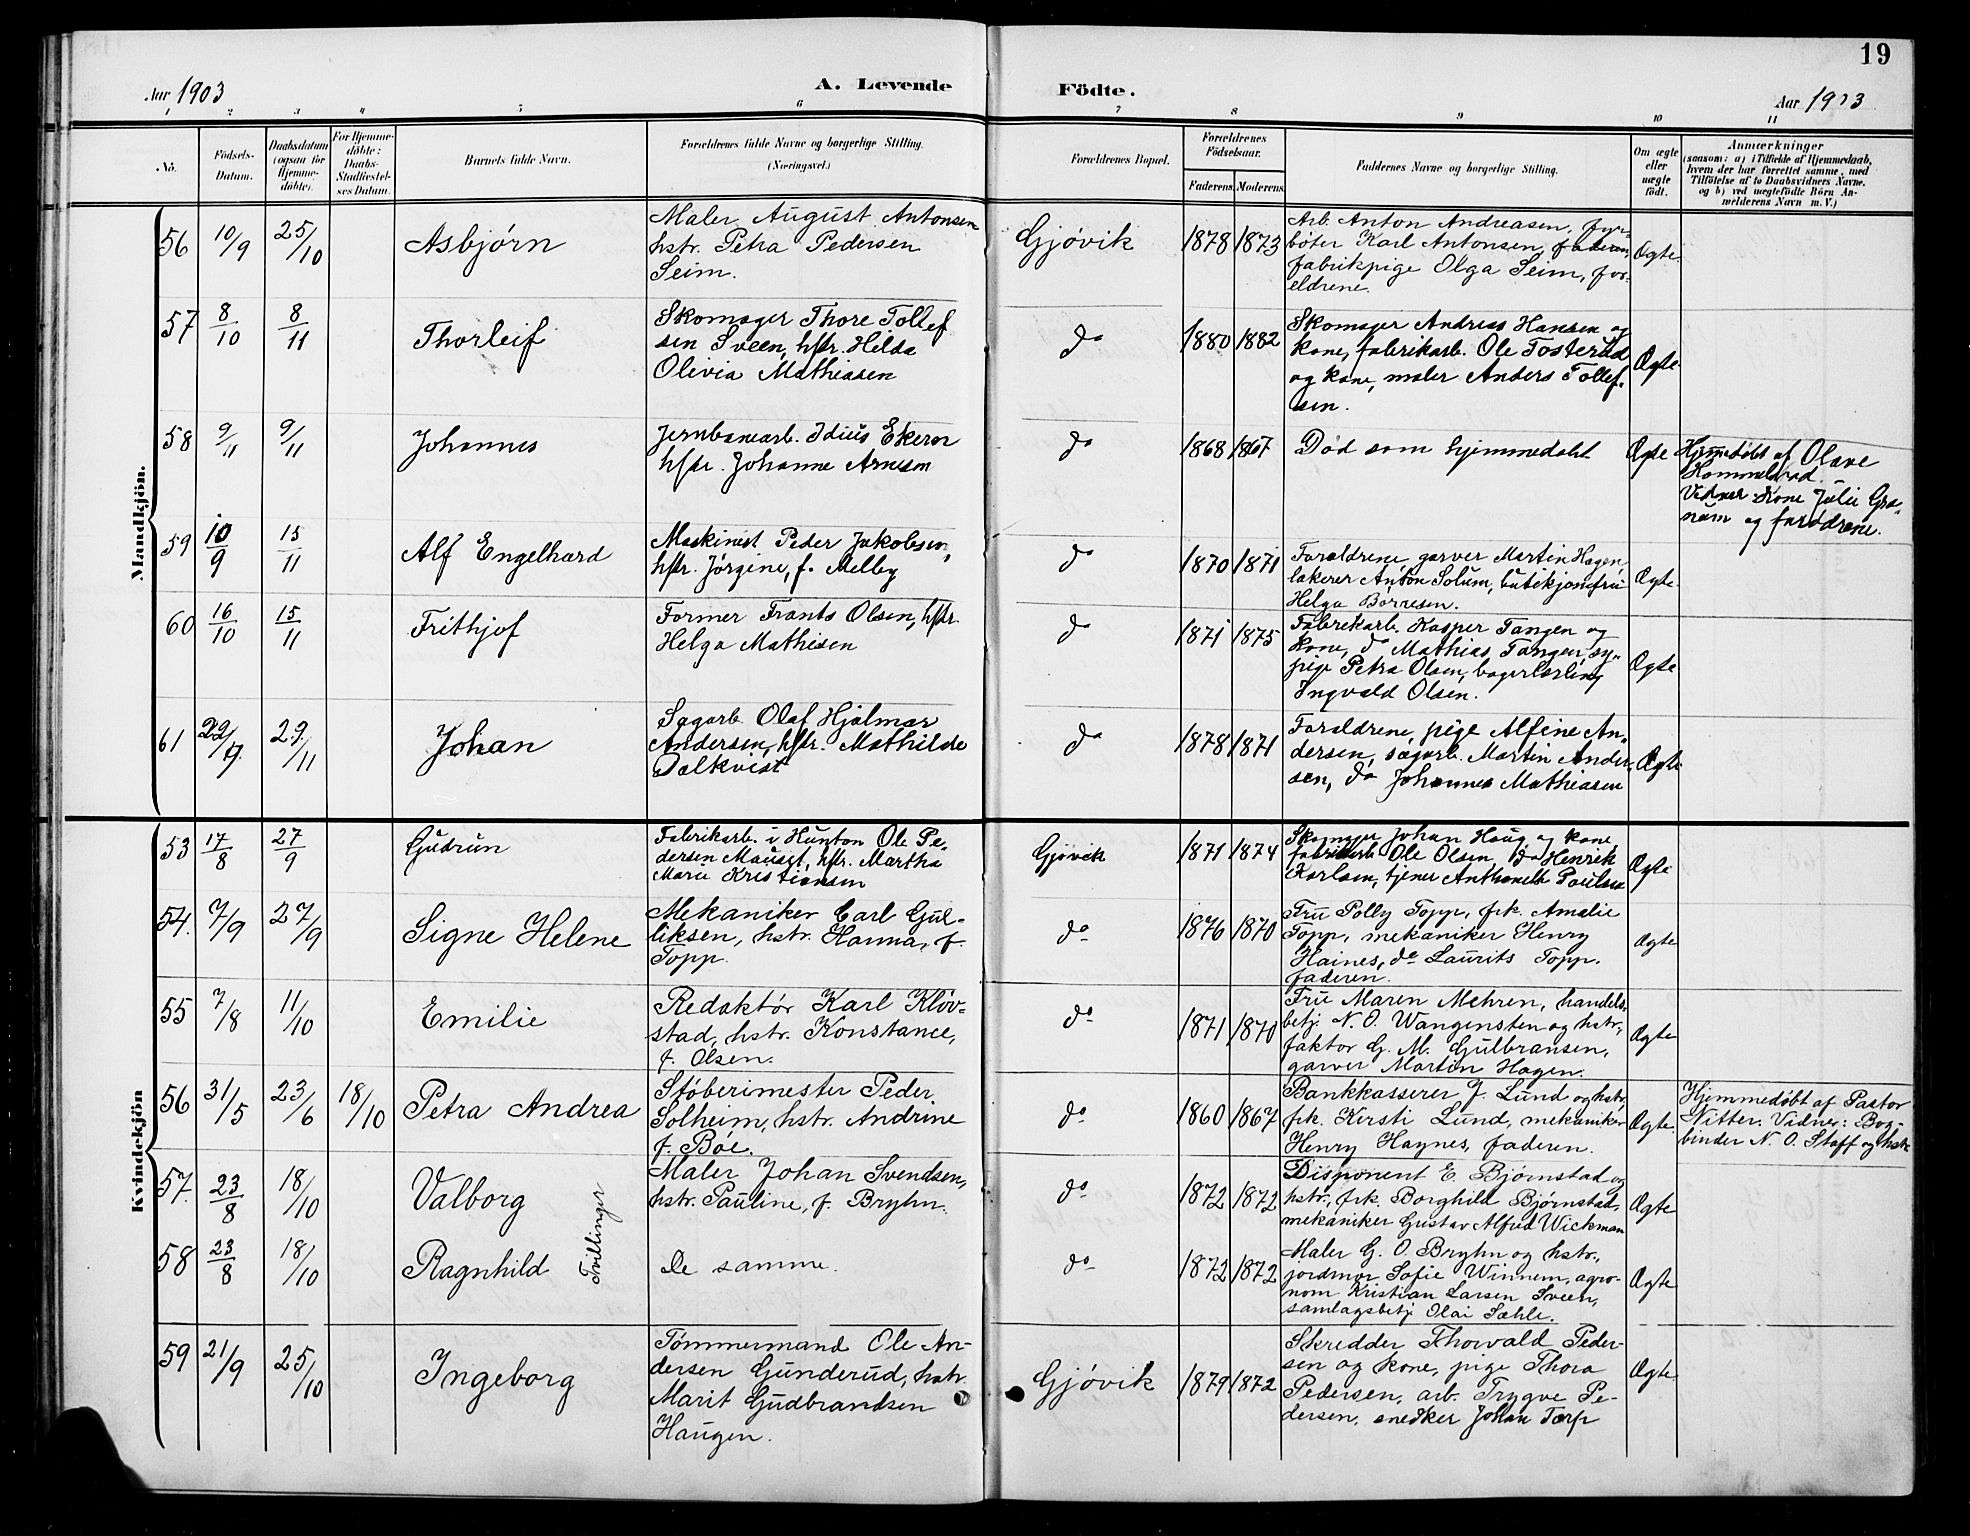 19
Aar 1903
A. Levende
Födte.
Aar 1903
1 2 3 4 5 6 7 8 9 10 11
No.
Födsels-
Datum.
Daabsdatum
(ogsaa for
Hjemme-
döbte).
For Hjemme-
döbte:
Daabs-
Stadfæstel-
ses Datum.
Barnets fulde Navn.
Forældrenes fulde Navne og borgerlige Stilling.
(Næringsvei.)
Forældrenes Bopæl.
Forældrenes
Födselsaar.
Faderens
Moderens
Faddernes Navne og borgerlige Stilling.
Om ægte
eller
uægte
födt.
Anmærkninger
(saasom: a) i Tilfælde af Hjemmedaab,
hvem der har forrettet samme, med
Tilföielse af to Daabsvidners Navne,
og b) ved uægtefödte Börn An-
melderens Navn m. V.)
Mandkjön.
56 10/9 25/10 Asbjørn
Maler August Antonsen
hstr. Petra Pedersen
Seim.
Gjøvik 1878 1873
Arb. Anton Andreasen, fyr-
bøter Karl Antonsen, faderen,
fabrikpige Olga Seim, for-
eldrene.
Ægte.
57 8/10 8/11 Thorleif
Skomager Thore Tollef
sen Sveen, hstr. Hilda
Olivia Mathiasen
do 1880 1882
Skomager Andreas Hansen og
kone, fabrikarb. Ole Tosterud
og kone, maler Anders Tollef-
sen.
Ægte
58 9/11 9/11 Johannes
Jernbanearb. Idius Ekeror
hstr. Johanne Arnesen
do 1868 1867
Død som hjemmedøbt
Ægte
Hjemmedøbt af Olave
Hommelstad.
Vidner Kone Julie Gra-
num og forældrene.
59 10/9 15/11 Alf Engelhard
Maskinist Peder Jakobsen,
hstr. Jörgine, f. Melby
do 1870 1871
Foraldrene, garver Martin Hagen,
lakerer Anton Solum, butikjomfru
Helga Børresen.
Ægte
60 16/10 15/11 Frithjof
Former Frants Olsen, hstr.
Helga Mathisen
do 1871 1875
Fabrikarb. Kasper Tangen og
kone, do Mathias Tangen, sy-
pige Petra Olsen, bagerlærling
Ingvald Olsen.
Ægte
61 22/9 29/11 Johan
Sagarb. Olaf Hjalmar
Andersen, hstr. Mathilde
Dalkvist
do 1878 1871
Foraldrene, pige Alfine An-
dersen, sagarb. Martin Ander-
sen, do Johannes Mathiasen
Ægte
Kvindekjön
53 17/8 27/9 Gudrun
Fabrikarb. i Hunton Ole Pe-
dersen Mauset, hstr. Martha
Marie Kristiansen
Gjøvik 1871 1874
Skomager Johan Haug og kone,
fabrikarb Ole Olsen, do Henrik
Karlsen, tjener Anthonette Poulsen
Ægte
54. 7/9 27/9 Signe Helene
Mekaniker Carl Gul-
liksen, hstr. Hanna, f.
Topp.
do 1876 1870
Fru Polly Topp, frk. Amalie
Topp, mekaniker Henry
Haines, do Laurits Topp.
faderen.
Ægte
55 7/8 11/10 Emilie
Redaktør Karl Kløv-
stad, hstr. Konstance,
f. Olsen.
do 1871 1870
Fru Maren Mehren, handels-
betj. N. O. Wangensten og hstr,
faktor G. M. Gulbransen,
garver Martin Hagen.
Ægte
56 31/5 23/6 18/10 Petra Andrea
Støberimester Peder
Solheim, hstr. Andrine
f. Bøe.
do 1860 1867
Bankkasserer J. Lund og hstr,
frk. Kirsti Lund, mekaniker
Henry Haynes, faderen.
Ægte.
Hjemmedøbt af Pastor
Nitter. Vidner: Bog-
binder N. O. Staff og hstr
57. 23/8 18/10 Valborg
Tvillinger
Maler Johan Svendsen,
hstr. Pauline, f. Bryhn.
do 1872 1872
Disponent E. Bjørnstad og
hstr., frk. Borghild Bjørnstad,
mekaniker Gustav Alfred Wickman
Ægte
58 23/8 18/10 Ragnhild
De samme.
do 1872 1872
Maler G. O. Bryhn og hstr.,
jordmor Sofie Winnem, agro-
nom Kristian Larsen Sveen,
samlagsbetj Olai Sæhle.
Ægte
59 21/9 25/10 Ingeborg
Tømmermand Ole An-
dersen Gunderud, hstr.
Marit Gudbrandsen
Haugen.
Gjøvik 1879 1872
Skredder Thorvald Peder-
sen og kone, pige Thora
Pedersen, arb. Trygve Pe-
dersen, snedker Johan Torp
Ægte